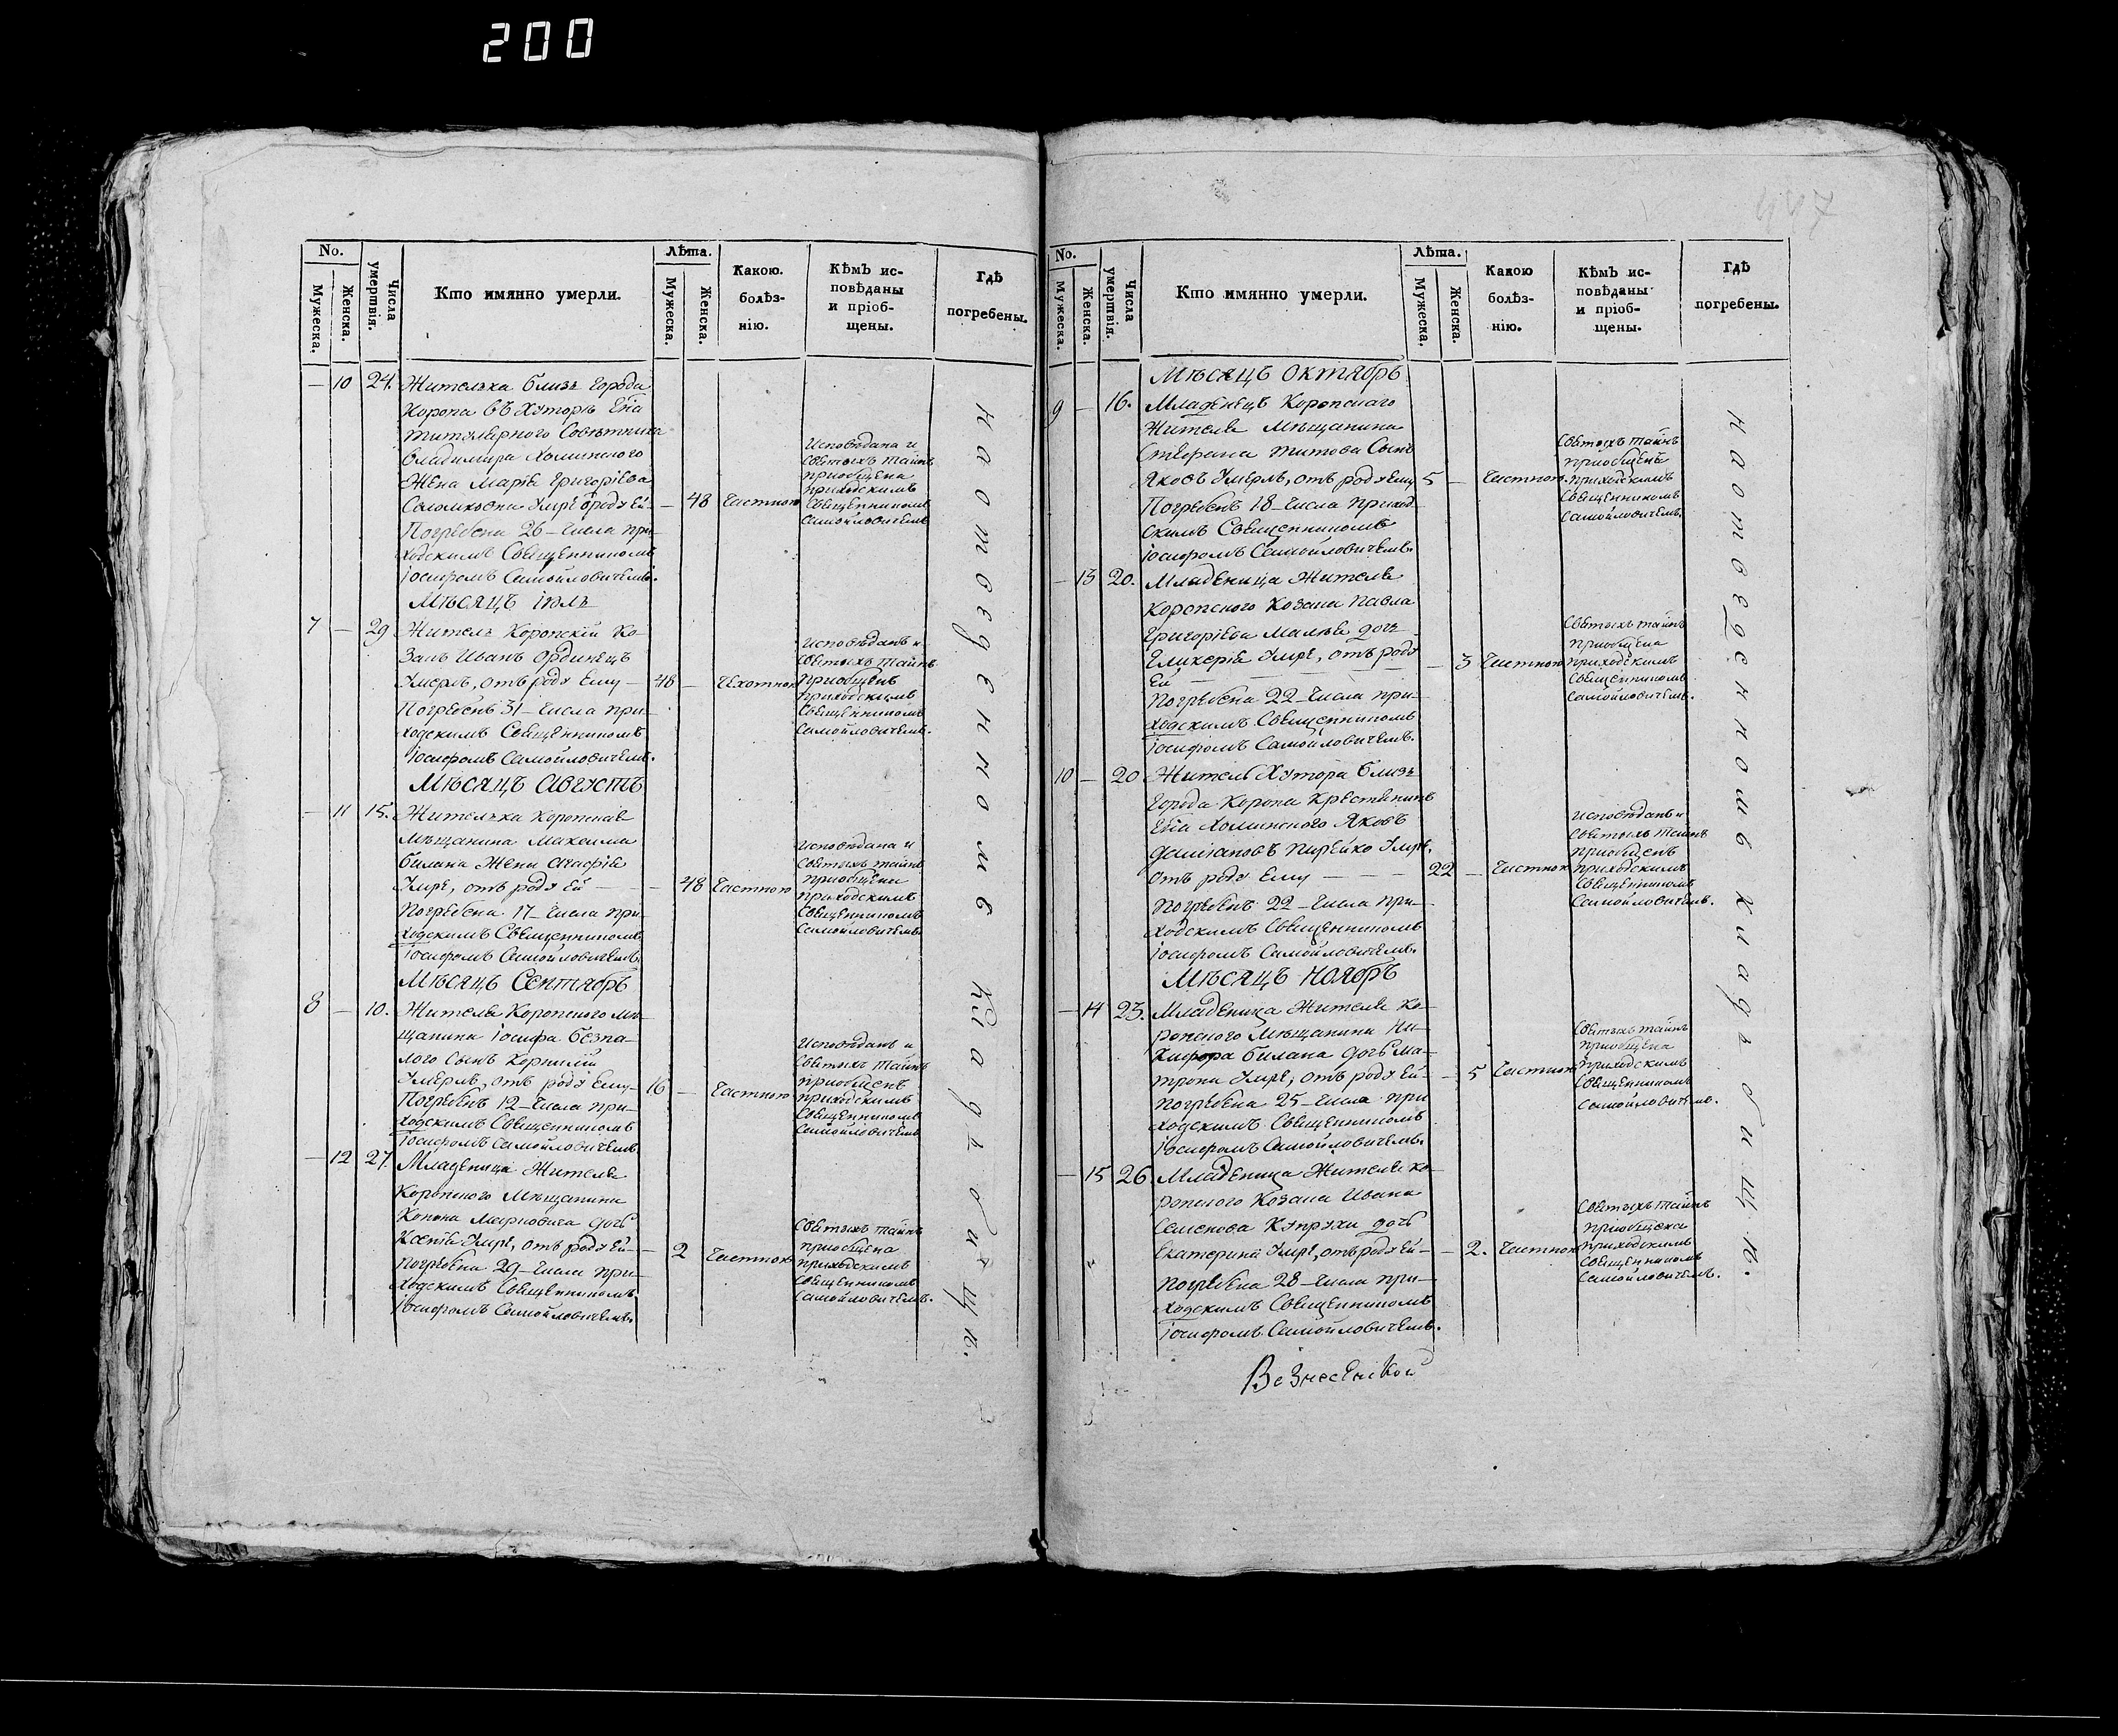 200
No.
Мужеска.
Женска.
Числа умертвія.
Кто имянно умерли.
Лѣта.
Мужеска.
Женска.
Какою. болѣз- нію.
Кѣмъ ис- повѣданы и пріоб- щены.
Гдѣ погребены.
— 10 24. Жителька близъ города
Коропа въ хуторѣ Его
титулярного Совѣтника
Владимира Холминского
Жена Марія Григоріева
умре ѿроду ей — 48 Чахоткою
Погребена 26 — числа при-
ходскимъ Священникомъ
Іосифомъ Самойловичемъ.
Исповѣдана и
Святыхъ тайнъ
приобщена
приходскимъ
Священникомъ
Самойловичемъ
Мѣсяцъ іюль
7 — 29 Житель Коропскій Ко-
закъ Иванъ Ординецъ
умерлъ, отъ роду ему — 48 —
Погребенъ 31 — числа при-
ходскимъ Священникомъ
Іосифомъ Самойловичемъ.
Исповѣданъ и
Святыхъ тайнъ
приобщенъ
приходскимъ
Священникомъ
Самойловичемъ.
Мѣсяцъ Августъ
— 11 15. Жителька Коропская
мѣщанина Максима
Билана жена Агафія
умре, отъ роду ей — — 48
Погребена 17 — числа при-
ходскимъ Священникомъ
Іосифомъ Самойловичемъ.
Исповѣдана и
Святыхъ тайнъ
приобщена
приходскимъ
Священникомъ
Самойловичемъ
Мѣсяцъ Сентябрь
8 — 10. Жителя Коропского мѣ-
щанина Іосифа Безпа-
лого сынъ Корнилій
умерлъ, отъ роду ему — 16 —
Погребенъ 12 — числа при-
ходскимъ Священникомъ
Іосифомъ Самойловичемъ
Исповѣданъ и
Святыхъ тайнъ
приобщенъ
приходскимъ
Священникомъ
Самойловичемъ
— 12 27. Младеница жителя
Коропского мѣщанина
Конона Марковича дочь
Ксенія умре, отъ роду ей — — 2
Погребена 29 — числа при-
ходскимъ Священникомъ
Іосифомъ Самойловичемъ.
Святыхъ тайнъ
приобщена
приходскимъ
Священникомъ
Самойловичемъ.
На отведенномъ кладъбищѣ.
No.
Мужеска.
Женска.
Числа умертвія.
Кто имянно умерли.
Лѣта.
Мужеска.
Женска.
Какою болѣз- нію.
Кѣмъ ис- повѣданы и пріоб- щены.
Гдѣ погребены.
Мѣсяцъ Октябрь
9 — 16. Младенецъ Коропскаго
жителя мѣщанина
Стефана Титова сынъ
Яковъ умерлъ, отъ роду ему 5 —
Погребенъ 18 — числа приход-
скимъ Священникомъ
Іосифомъ Самойловичемъ.
Святыхъ тайнъ
приобщенъ
приходскимъ
Священникомъ
Самойловичемъ.
— 13 20. Младеница жителя
Коропского Козака Павла
Григоріева дочь
Гликерія умре, отъ роду — 3
ей — — —
Погребена 22 — числа при-
ходскимъ Священникомъ
Іосифомъ Самойловичемъ.
Святыхъ тайнъ
приобщена
приходскимъ
Священникомъ
Самойловичемъ.
10 — 20 Житель хутора близъ
города Коропа крестянинъ
Его Холминского Яковъ
умре,
отъ роду ему — — — 22 —
Погребенъ 22 — числа при-
ходскимъ Священникомъ
Іосифомъ Самойловичемъ.
исповѣданъ и
Святыхъ тайнъ
приобщенъ
приходскимъ
Священникомъ
Самойловичемъ.
Мѣсяцъ Ноябрь
— 14 23. Младеница жителя Ко-
ропского мѣщанина Ни-
кифора Билана дочь Ма-
трона умре, отъ роду ей — — 5
Погребена 25 — числа при
ходскимъ Священникомъ
Іосифомъ Самойловичемъ.
Святыхъ тайнъ
приобщена
приходскимъ
Священникомъ
Самойловичемъ.
— 15 26. Младеница жителя Ко-
ропского Козака Ивана
Семенова Купрухи дочь
Екатерина умре, отъ роду ей — — 2.
Погребена 28 — числа при-
ходскимъ Священникомъ
Іосифомъ Самойловичемъ.
Святыхъ тайнъ
приобщена
приходскимъ
Священникомъ
Самойловичемъ.
На отведенномъ кладъбищѣ.
Вознесенской